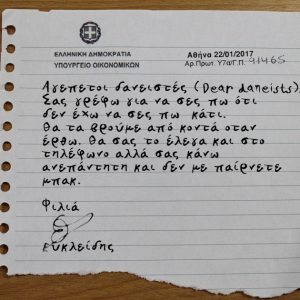 ΕΛΛΗΝΙΚΗ ΔΗΜΟΚΡΑΤΙΑ
ΥΠΟΥΡΓΕΙΟ ΟΙΚΟΝΟΜΙΚΩΝ
Αθήνα 22/01/2017
Αρ.Πρωτ. Υ7α/Γ.Π. 91465
Αγεπετοί δανειστές (Dear daneists),
Σας γρέφω για να σες πω ότι
δεν έχω να σες πω κάτι.
Θα τα βρούμε από κοντά οταν
έρθω. Θα σας το έλεγα και στο
τηλέφωνο αλλά σας κάνω
ανεπάντητη και δεν με παίρνετε
μπακ.
Φιλιά
Ευκλείδης